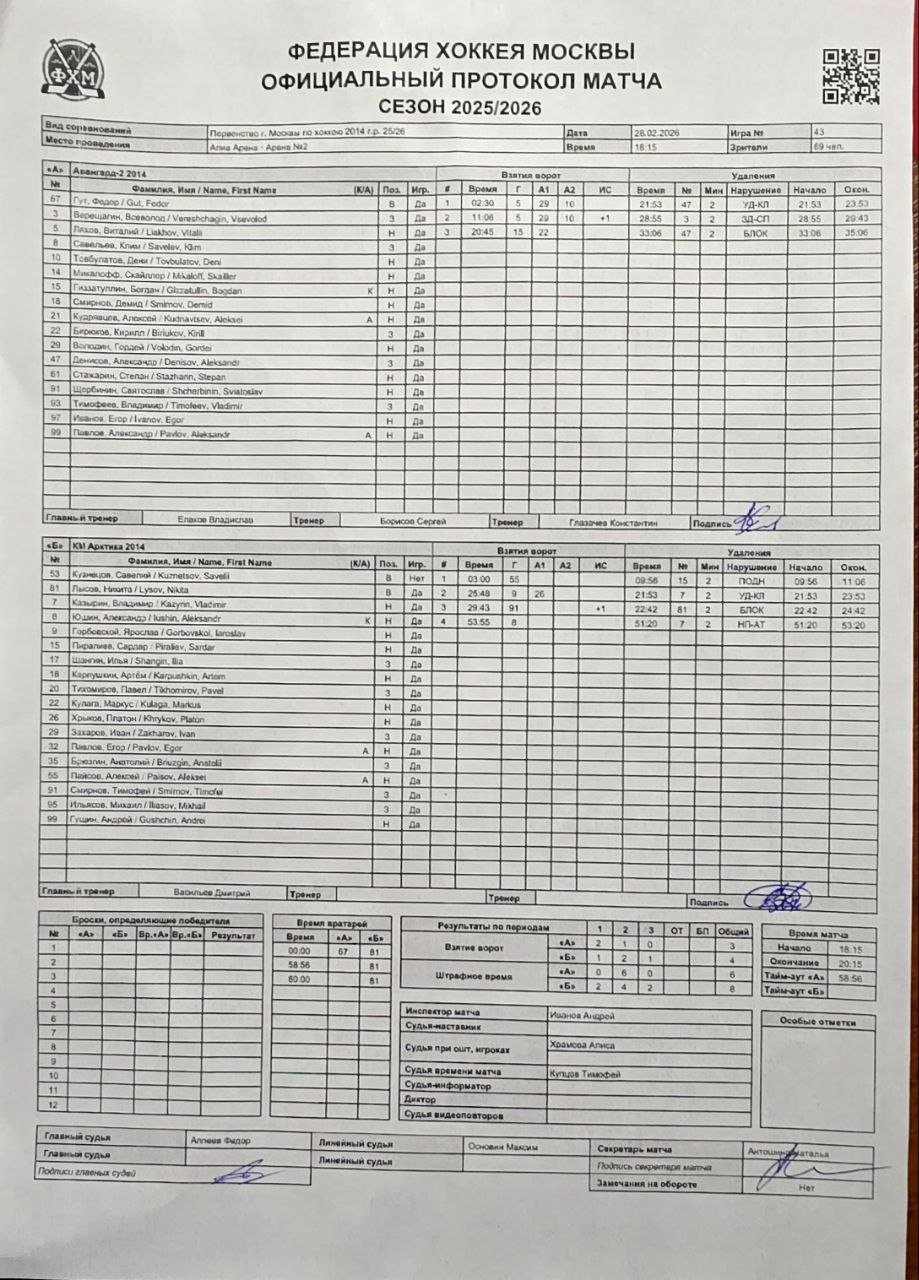 ФХМ
ФЕДЕРАЦИЯ ХОККЕЯ МОСКВЫ
ОФИЦИАЛЬНЫЙ ПРОТОКОЛ МАТЧА
СЕЗОН 2025/2026
Вид соревнований Первенство г. Москвы по хоккею 2014 г.р. 25/26 Дата 28.02.2026 Игра № 43
Место проведения Алиа Арена - Арена №2 Время 18:15 Зрители 69 чел.
«А» Авангард-2 2014 Взятия ворот Удаления
№ Фамилия, Имя / Name, First Name (К/А) Поз. Игр. # Время Г А1 А2 ИС Время № Мин Нарушение Начало Окон.
67 Гут, Федор / Gut, Fedor В Да 1 02:30 5 29 10 21:53 47 2 УД-КЛ 21:53 23:53
3 Верещагин, Всеволод / Vereshchagin, Vsevolod З Да 2 11:06 5 29 10 +1 28:55 3 2 ЗД-СП 28:55 29:43
5 Ляхов, Виталий / Liakhov, Vitalii Н Да 3 20:45 15 22 33:06 47 2 БЛОК 33:06 35:06
8 Савельев, Клим / Savelev, Klim З Да
10 Товбулатов, Дени / Tovbulatov, Deni Н Да
14 Микалофф, Скайллер / Mikaloff, Skailler Н Да
15 Гиззатуллин, Богдан / Gizzatullin, Bogdan К Н Да
18 Смирнов, Демид / Smirnov, Demid Н Да
21 Кудрявцев, Алексей / Kudriavtsev, Aleksei А Н Да
22 Бирюков, Кирилл / Biriukov, Kirill З Да
29 Володин, Гордей / Volodin, Gordei Н Да
47 Денисов, Александр / Denisov, Aleksandr З Да
61 Стажарин, Степан / Stazharin, Stepan Н Да
91 Щербинин, Святослав / Shcherbinin, Sviatoslav Н Да
93 Тимофеев, Владимир / Timofeev, Vladimir З Да
97 Иванов, Егор / Ivanov, Egor Н Да
99 Павлов, Александр / Pavlov, Aleksandr А Н Да
Главный тренер Елаков Владислав Тренер Борисов Сергей Тренер Глазачев Константин Подпись
«Б» КМ Арктика 2014 Взятия ворот Удаления
№ Фамилия, Имя / Name, First Name (К/А) Поз. Игр. # Время Г А1 А2 ИС Время № Мин Нарушение Начало Окон.
53 Кузнецов, Савелий / Kuznetsov, Savelii В Нет 1 03:00 55 09:56 15 2 ПОДН 09:56 11:06
81 Лысов, Никита / Lysov, Nikita В Да 2 25:48 9 26 21:53 7 2 УД-КЛ 21:53 23:53
7 Казырин, Владимир / Kazyrin, Vladimir Н Да 3 29:43 91 +1 22:42 81 2 БЛОК 22:42 24:42
8 Юшин, Александр / Iushin, Aleksandr К Н Да 4 53:55 8 51:20 7 2 НП-АТ 51:20 53:20
9 Горбовской, Ярослав / Gorbovskoi, Iaroslav Н Да
15 Пиралиев, Сардар / Piraliev, Sardar Н Да
17 Шангин, Илья / Shangin, Ilia З Да
18 Карпушкин, Артём / Karpushkin, Artem Н Да
20 Тихомиров, Павел / Tikhomirov, Pavel З Да
22 Кулага, Маркус / Kulaga, Markus Н Да
26 Хрыков, Платон / Khrykov, Platon Н Да
29 Захаров, Иван / Zakharov, Ivan З Да
32 Павлов, Егор / Pavlov, Egor А Н Да
35 Брюзгин, Анатолий / Briuzgin, Anatolii З Да
55 Пайсов, Алексей / Paisov, Aleksei А Н Да
91 Смирнов, Тимофей / Smirnov, Timofei З Да
95 Ильясов, Михаил / Iliasov, Mikhail З Да
99 Гущин, Андрей / Gushchin, Andrei Н Да
Главный тренер Васильев Дмитрий Тренер Тренер Подпись
Броски, определяющие победителя
№ «А» «Б» Вр.«А» Вр.«Б» Результат
1
2
3
4
5
6
7
8
9
10
11
12
Время вратарей
Время «А» «Б»
00:00 67 81
58:56 81
60:00 81
Результаты по периодам 1 2 3 ОТ БП Общий
Взятие ворот «А» 2 1 0 3
«Б» 1 2 1 4
Штрафное время «А» 0 6 0 6
«Б» 2 4 2 8
Время матча
Начало 18:15
Окончание 20:15
Тайм-аут «А» 58:56
Тайм-аут «Б»
Инспектор матча Иванов Андрей
Судья-наставник
Судья при ошт. игроках Храмова Алиса
Судья времени матча Купцов Тимофей
Судья-информатор
Диктор
Судья видеоповторов
Особые отметки
Главный судья Аллеев Фидар Линейный судья Основин Максим Секретарь матча Наталья
Главный судья Линейный судья Подпись секретаря матча
Подписи главных судей Замечания на обороте Нет